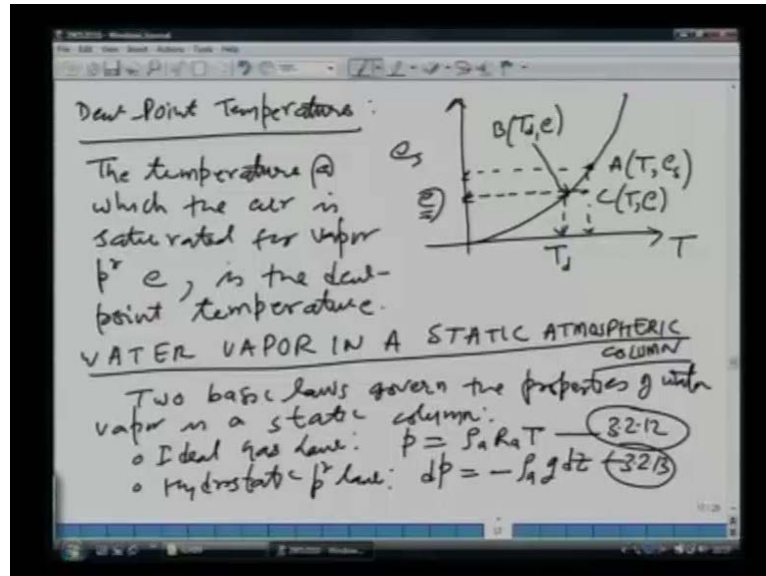 File Edit View Insert Actions Tools Help
Dew-Point Temperature :
The temperature @
which the air is
saturated for vapor
pr e, is the dew-
point temperature.
es
e
B(Td, e)
A(T, es)
C(T, e)
Td
T
WATER VAPOR IN A STATIC ATMOSPHERIC
COLUMN
Two basic laws govern the properties of water
vapor in a static column:
o Ideal gas law: p = ρa Ra T — 3.2.12
o Hydrostatic pr law: dp = - ρa g dz — 3.2.13